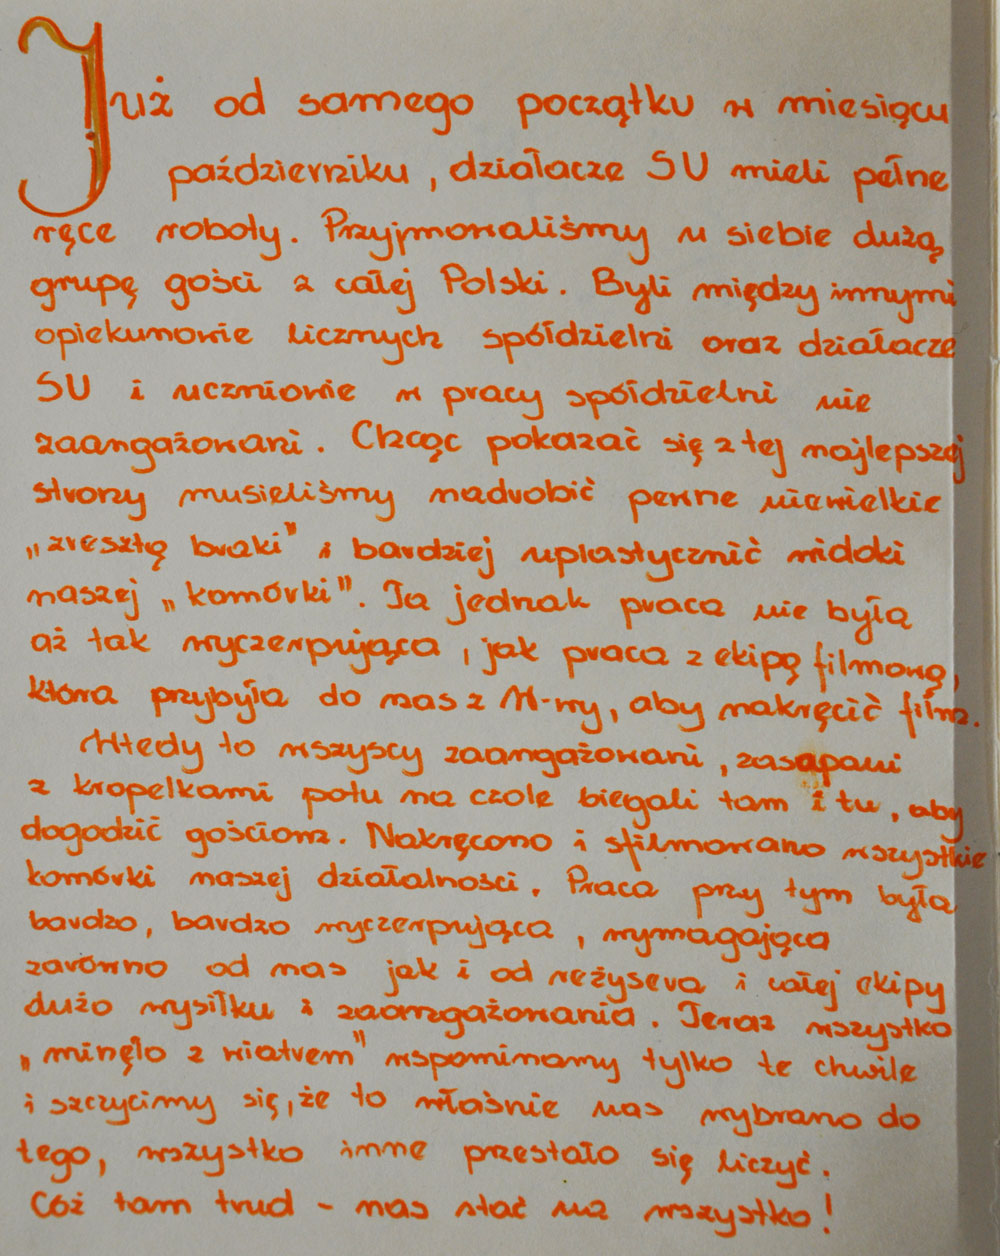 Już od samego początku w miesiącu
październiku, działacze SU mieli pełne
ręce roboty. Przyjmowaliśmy u siebie dużą
grupę gości z całej Polski. Byli między innymi
opiekunowie licznych spółdzielni oraz działacze
SU i uczniowie w pracy spółdzielni nie
zaangażowani. Chcąc pokazać się z tej najlepszej
strony musieliśmy nadrobić pewne niewielkie
„zresztą braki" i bardziej uplastycznić widoki
naszej „komórki". Ta jednak praca nie była
aż tak wyczerpująca, jak praca z ekipą filmową,
która przybyła do nas z W-wy, aby nakręcić film.
Wtedy to wszyscy zaangażowani, zasapani
z kropelkami potu na czole biegali tam i tu, aby
dogodzić gościom. Nakręcono i sfilmowano wszystkie
komórki naszej działalności. Praca przy tym była
bardzo, bardzo wyczerpująca, wymagająca
zarówno od nas jak i od reżysera i całej ekipy
dużo wysiłku i zaangażowania. Teraz wszystko
„minęło z wiatrem" wspominamy tylko te chwile
i szczycimy się, że to właśnie nas wybrano do
tego, wszystko inne przestało się liczyć.
Cóż tam trud - nas stać na wszystko!